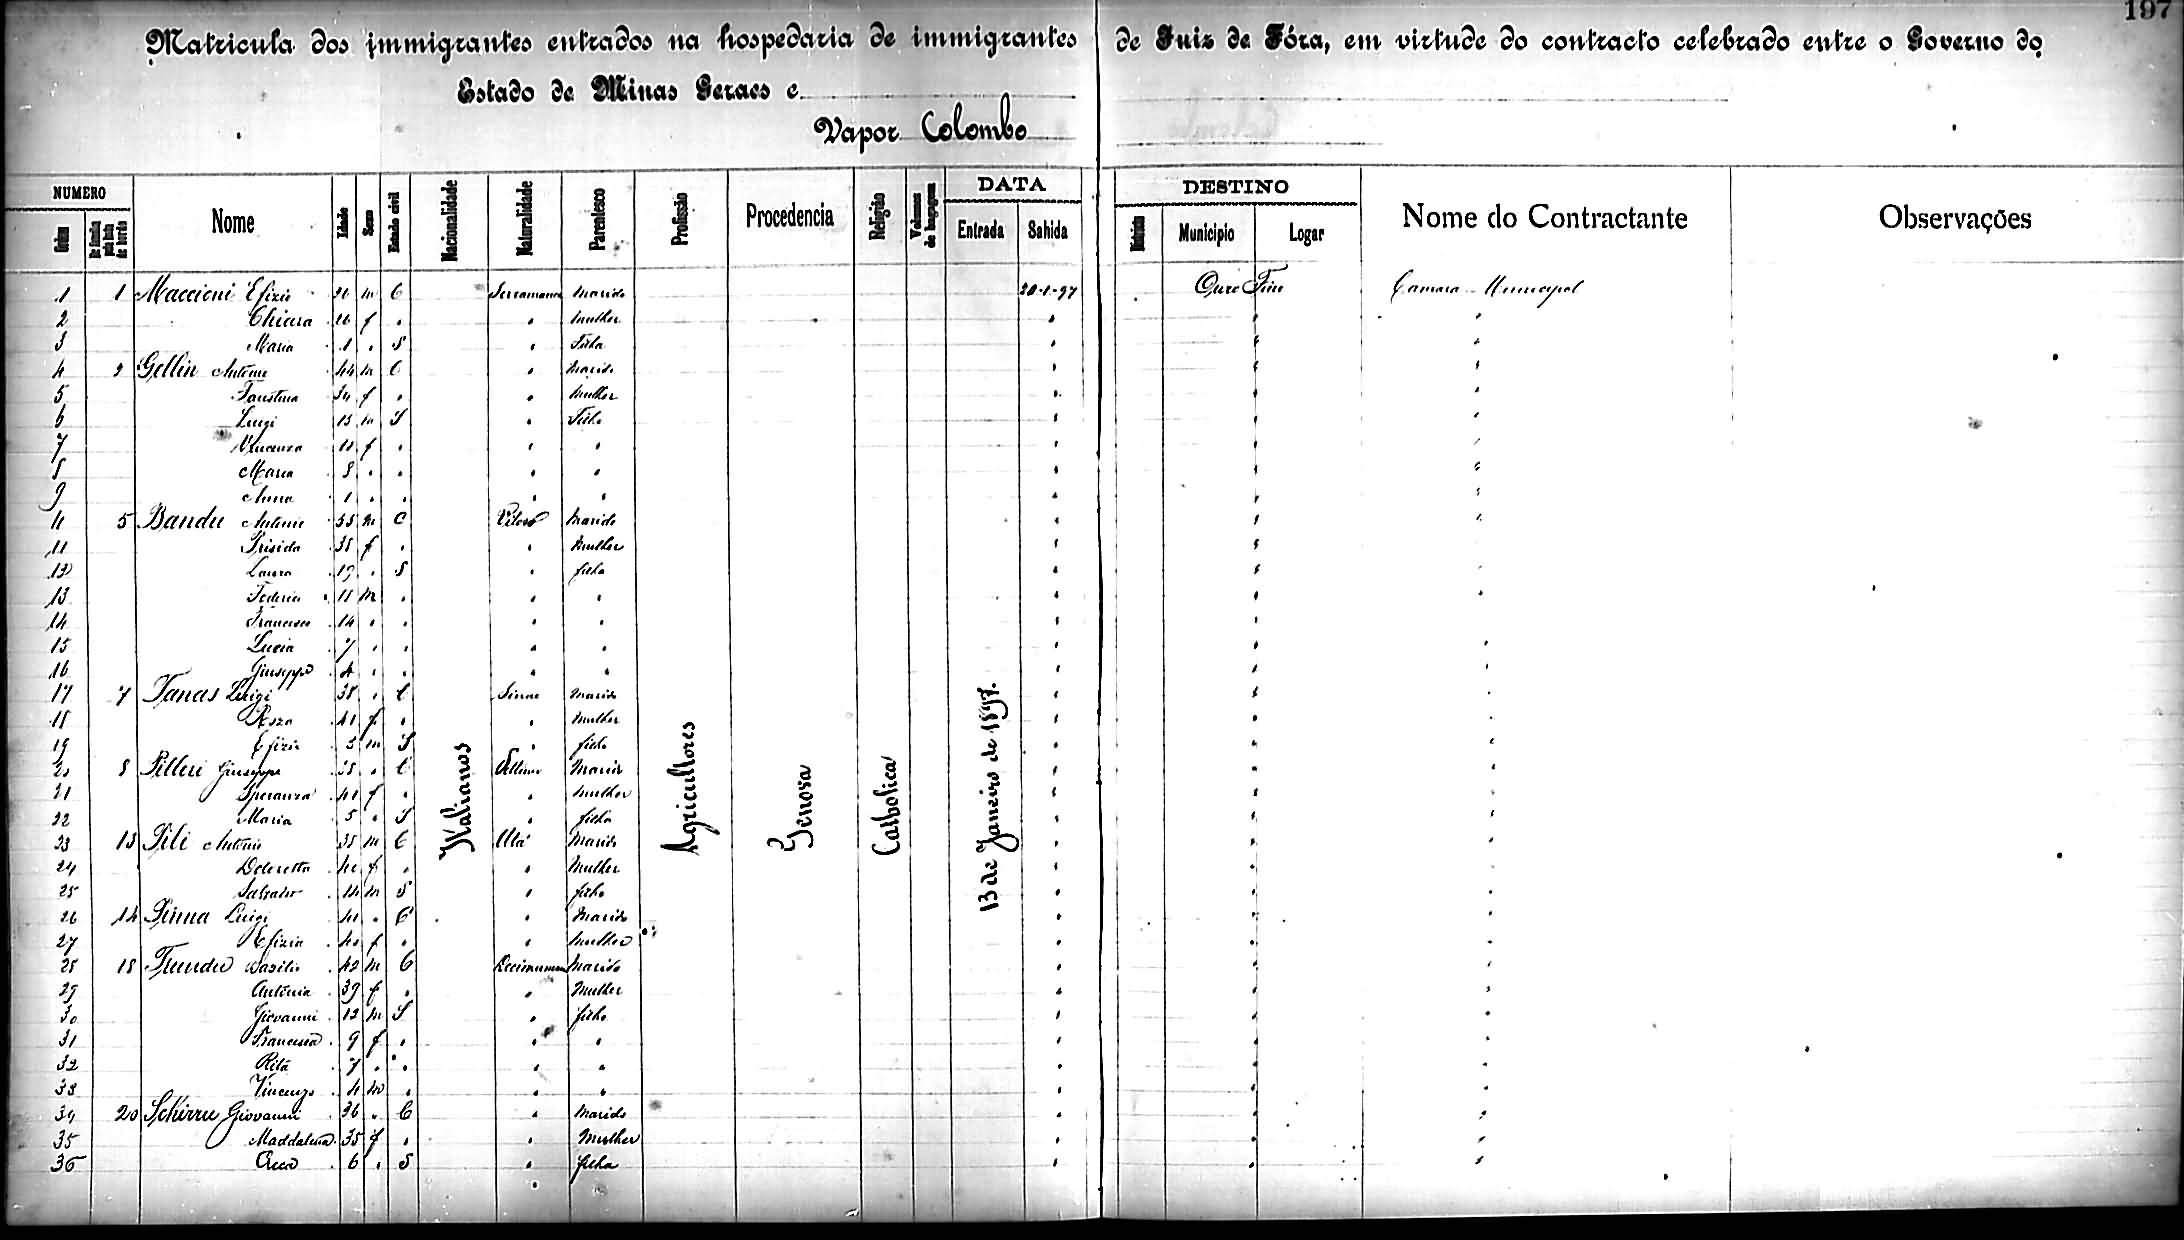 197
Matricula dos immigrantes entrados na hospedaria de immigrantes de Juiz de Fóra, em virtude do contracto celebrado entre o Governo do
Estado de Minas Geraes e
Vapor Colombo
NUMERO Nome Idade Sexo Estado civil Nacionalidade Naturalidade Parentesco Profissão Procedencia Religião Volumes de bagagem DATA DESTINO Nome do Contractante Observações
Ordem De familia pela lista de bordo Entrada Sahida Districto Municipio Logar
1 1 Maccioni Efizio 26 m C Marido 20-1-97 Ouro Fino Camara Municipal
2 Chiara 26 f " " Mulher " " "
3 Maria 1 " S " Filha " " "
4 2 Gellin Antonio 44 m C " Marido " " "
5 Faustina 34 f " " Mulher " " "
6 Luigi 13 m S " Filho " " "
7 Vincenza f " " " " " "
8 Maria 8 " " " " " " "
9 Anna 1 " " " " " " "
5 Bandu Antonio m C Marido " " "
11 38 f " " Mulher " " "
12 Laura 19 " S " filha " " "
13 m " " " " " "
14 Francisco 14 " " " " " " "
15 Lucia 7 " " " " " " "
16 Giuseppe 4 " " " " " " "
17 7 Tanas Luigi 38 " C Marido " " "
18 Roza 41 f " " Mulher " " "
19 Efizio 5 m S " filho " " "
20 8 Pilleri Giuseppe 38 " C Marido " " "
21 Speranza f " " Mulher " " "
22 Maria 5 " S " filha " " "
23 13 Pili Antonio 35 m C Uta Marido " " "
24 f " " Mulher " " "
25 Salvador 14 m S " filho " " "
26 14 Luigi " C " Marido " " "
27 Efizia 40 f " " Mulher " " "
28 18 Trundu Basilio 42 m C Marido " " "
29 Antonia 39 f " " Mulher " " "
30 Giovanni 12 m S " filho " " "
31 Francisca 9 f " " " " " "
32 Rita 7 " " " " " " "
33 Vincenzo 4 m " " " " " "
34 20 Schirru Giovanni 36 " C " Marido " " "
35 Maddalena 35 f " " Mulher " " "
36 6 " S " filha " " "
Italianos
Agricultores
Genova
Catholica
13 de Janeiro de 1897.